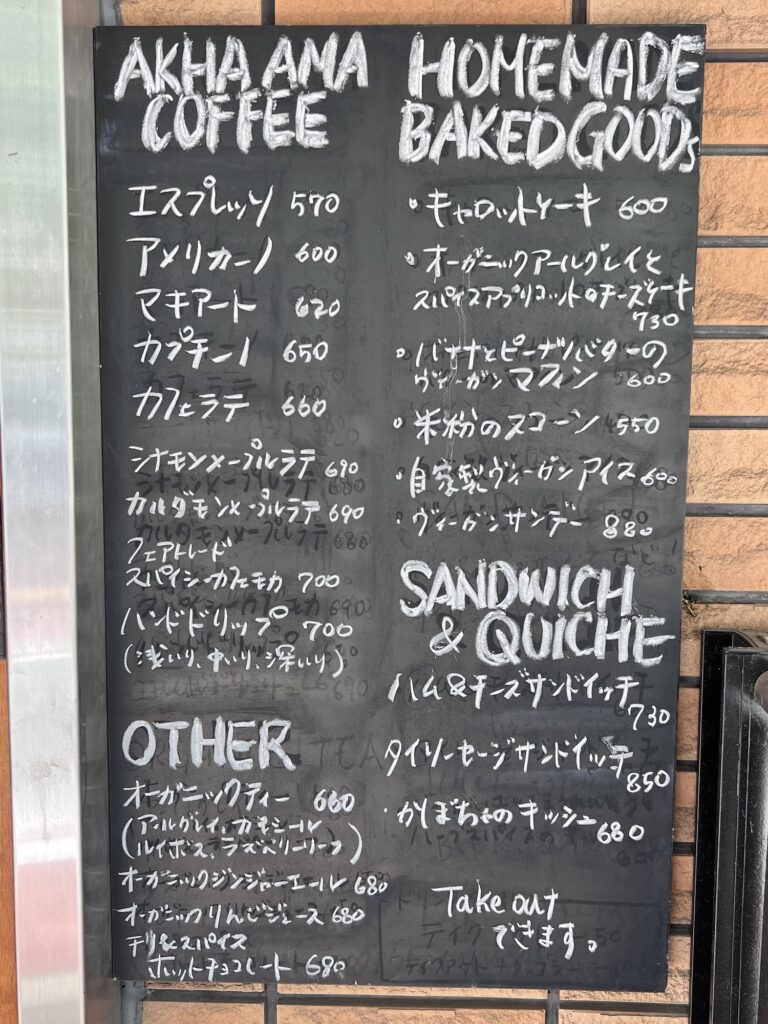 AKHA AMA
COFFEE
エスプレッソ 570
アメリカーノ 600
マキアート 620
カプチーノ 650
カフェラテ 660
シナモンメープルラテ 690
カルダモンメープルラテ 690
フェアトレード
スパイシーカフェモカ 700
ハンドドリップ 700
(浅いり、中いり、深いり)
OTHER
オーガニックティー 660
(アールグレイ、カモミール
ルイボス、ラズベリーリーフ)
オーガニックジンジャーエール 680
オーガニックりんごジュース 680
チリ&スパイス
ホットチョコレート 680
HOMEMADE
BAKED GOODs
・キャロットケーキ 600
・オーガニックアールグレイと
スパイスアプリコットのチーズケーキ
730
・バナナとピーナツバターの
ヴィーガンマフィン 600
・米粉のスコーン 550
・自家製ヴィーガンアイス 600
・ヴィーガンサンデー 880
SANDWICH
& QUICHE
ハム&チーズサンドイッチ
730
タイソーセージサンドイッチ
850
・かぼちゃのキッシュ 680
Take out
できます。